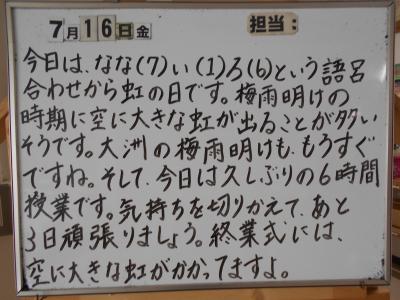 7月16日金 担当:
今日は、なな(7)い(1)ろ(6)という語呂
合わせから虹の日です。梅雨明けの
時期に空に大きな虹が出ることが多い
そうです。大洲の梅雨明けも、もうすぐ
ですね。そして、今日は久しぶりの6時間
授業です。気持ちを切りかえて、あと
3日頑張りましょう。終業式には、
空に大きな虹がかかってますよ。